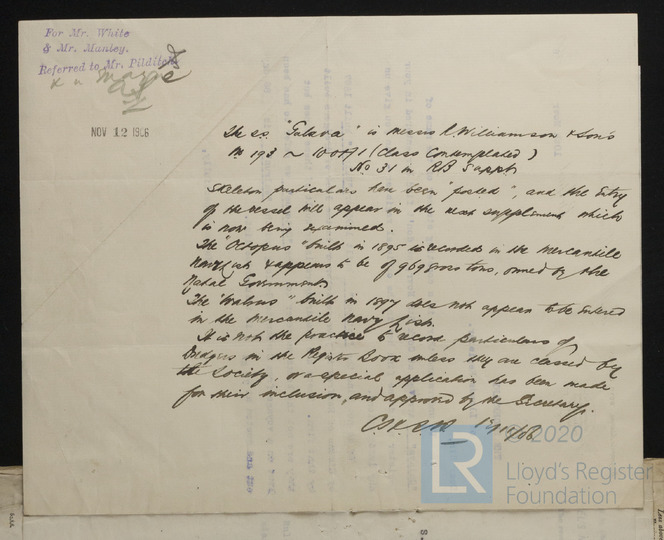 For Mr. White
& Mr. Manley.
Referred to Mr. Pilditch
NOV 12 1906
The s.s. "Talava" is Messrs R. Williamson & Son's
No 193 ~ 100A1 (Class Contemplated)
No 31 in RB Suppt
Skeleton particulars have been "posted", and the entry
of the vessel will appear in the next supplement which
is now being examined.
The "Octopus" built in 1895 is recorded in the Mercantile
Navy List & appears to be of 969 gross tons, owned by the
Natal Government.
The "Walrus" built in 1897 does not appear to be entered
in the Mercantile Navy List.
It is not the practice to record particulars of
Dredgers in the Register Book unless they are classed by
the Society, or a special application has been made
for their inclusion, and approved by the Secretary.
/11/06
© 2020
LR
Lloyd's Register
Foundation